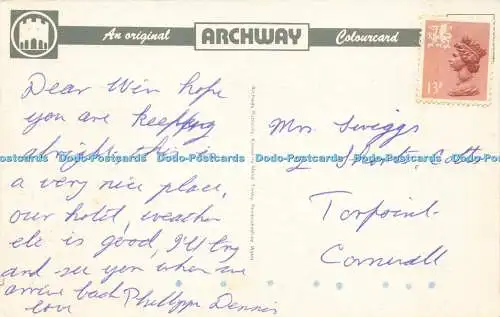 An original ARCHWAY Colourcard
13P
Dear Win hope
you are keeping
alright this is
a very nice place,
our hotel, weather
etc is good, I'll try
and see you when we
arrive back Phillippe Dennis
love
Mrs. Swiggs
2 Short Cotts
Torpoint
Cornwall
Dodo-Postcards Dodo-Postcards Dodo-Postcards Dodo-Postcards Dodo-Postcards